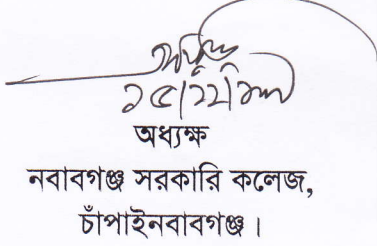 অধ্যক্ষ
নবাবগঞ্জ সরকারি কলেজ,
চাঁপাইনবাবগঞ্জ।